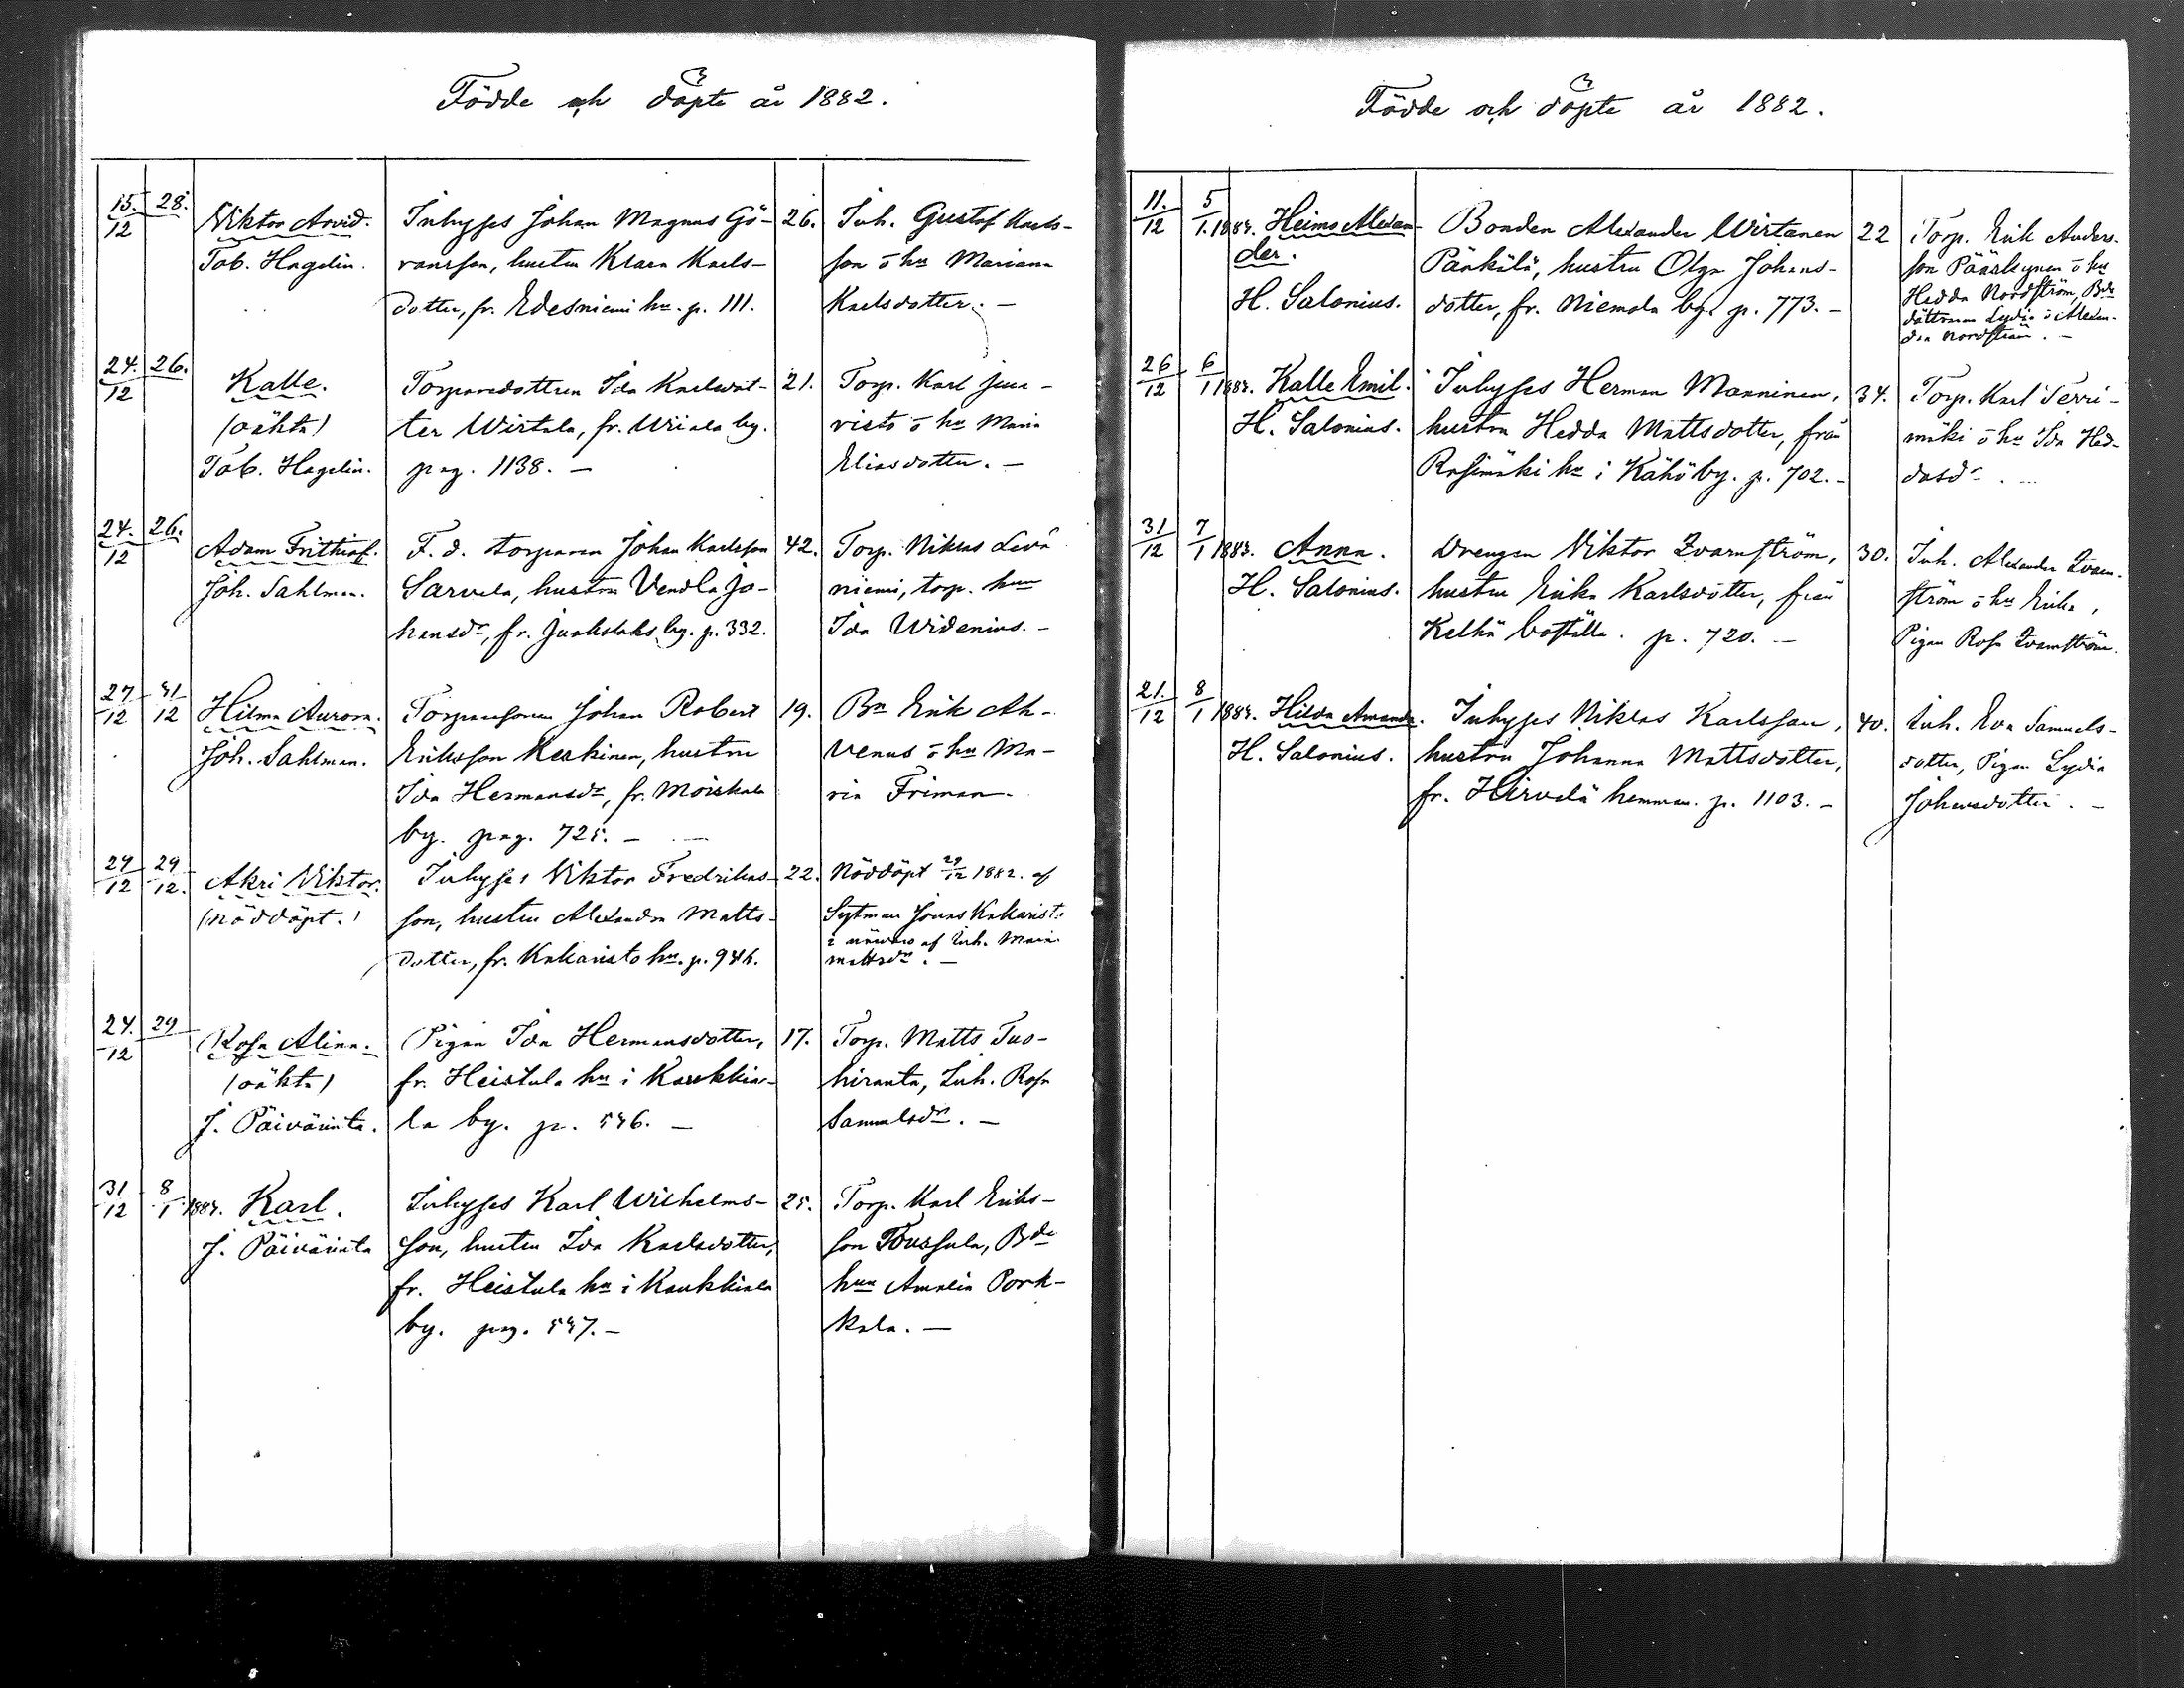 Födde och döpte år 1882.
15. 28.
12
Viktor Arvid.
Tob. Hagelin.
Inhyses Johan Magnus Gö-
ransson, hustru Klara Karls-
dotter, fr. Edesniemi hn. p. 111.
26.
Inh. Gustaf Karls-
son o hu Mariana
Karlsdotter. –
24. 26.
12
Kalle.
(oäkta)
Tob. Hagelin.
Torparedottren Ida Karlsdot-
ter Wirtala, fr. Wiiala by.
pag. 1138. –
21.
Torp. Karl Juu-
risto o hu Maria
Eliasdotter. –
24. 26.
12
Adam Frithiof.
Joh. Sahlman.
F. d. torparen Johan Karlsson
Sarvela, hustru Vendla Jo-
hansdr, fr. by. p. 332.
42.
Torp. Niklas Levä
niemi, torp. hun
Ida Widenius. –
27 31
12 12
Hilma Aurora.
Joh. Sahlman.
Torparesonen Johan Robert
Eriksson Keskinen, hustru
Ida Hermansdr, fr. Moiskala
by. pag. 725. –
19.
Bn Erik Ah-
venus o hu Ma-
ria Friman.
29 29
12 12.
Akri Viktor.
(Nöddöpt.)
Inhyses Viktor Fredriks-
son, hustru Alexandra Matts-
dotter, fr. Kakaristo hn. p. 946.
22.
Nöddöpt 29/12 1882. af
Sytman Jonas Kakaristo
i närvaro af Inh. Maria
Mattsdr. –
24. 29
12
Rosa Alina.
(oäkta)
J. Päivärinta.
Pigan Ida Hermansdotter,
fr. Heistula hn i Kaukkia-
la by. p. 546. –
17.
Torp. Matts Tuo-
hiranta, Inh. Rosa
Samuelsdr. –
31 8
12 1 1883. Karl.
J. Päivärinta
Inhyses Karl Wilhelms-
son, hustru Ida Karlsdotter,
fr. Heistula hn i Kaukkiala
by. pag. 547. –
25.
Torp. Karl Eriks-
son Toussula, Bde
hun Amalia Pork-
kala. –
Födde och döpte år 1882.
11. 5
12 1. 1883. Heimo Alexan-
der.
H. Salonius.
Bonden Alexander Wirtanen
Pänkälä, hustru Olga Johans-
dotter, fr. Niemola by. p. 773. –
22
Torp. Erik Anders-
son Pääskynen o hu
Hedda Nordström, Bde
döttrarna Lydia o Alexan-
dra Nordström. –
26 6
12 1 1883. Kalle Emil.
H. Salonius.
Inhyses Herman Manninen,
hustru Hedda Mattsdotter, från
Rasimäki hn i Kähö by. p. 702. –
34.
Torp. Karl Terri-
mäki o hu Ida Hed-
dasdr.
31 7
12 1 1883. Anna.
H. Salonius.
Drengen Viktor Qvarnström,
hustru Erika Karlsdotter, från
Kelhä boställe. p. 720. –
30.
Inh. Alexander Qvarn-
ström o hu Erika,
Pigan Rosa Qvarnström.
21. 8
12 1 1883. Hilda Amanda.
H. Salonius.
Inhyses Niklas Karlsson,
hustru Johanna Mattsdotter,
fr. Hirvelä hemman. p. 1103. –
40.
Inh. Eva Samuels-
dotter, Pigan Lydia
Johansdotter. –